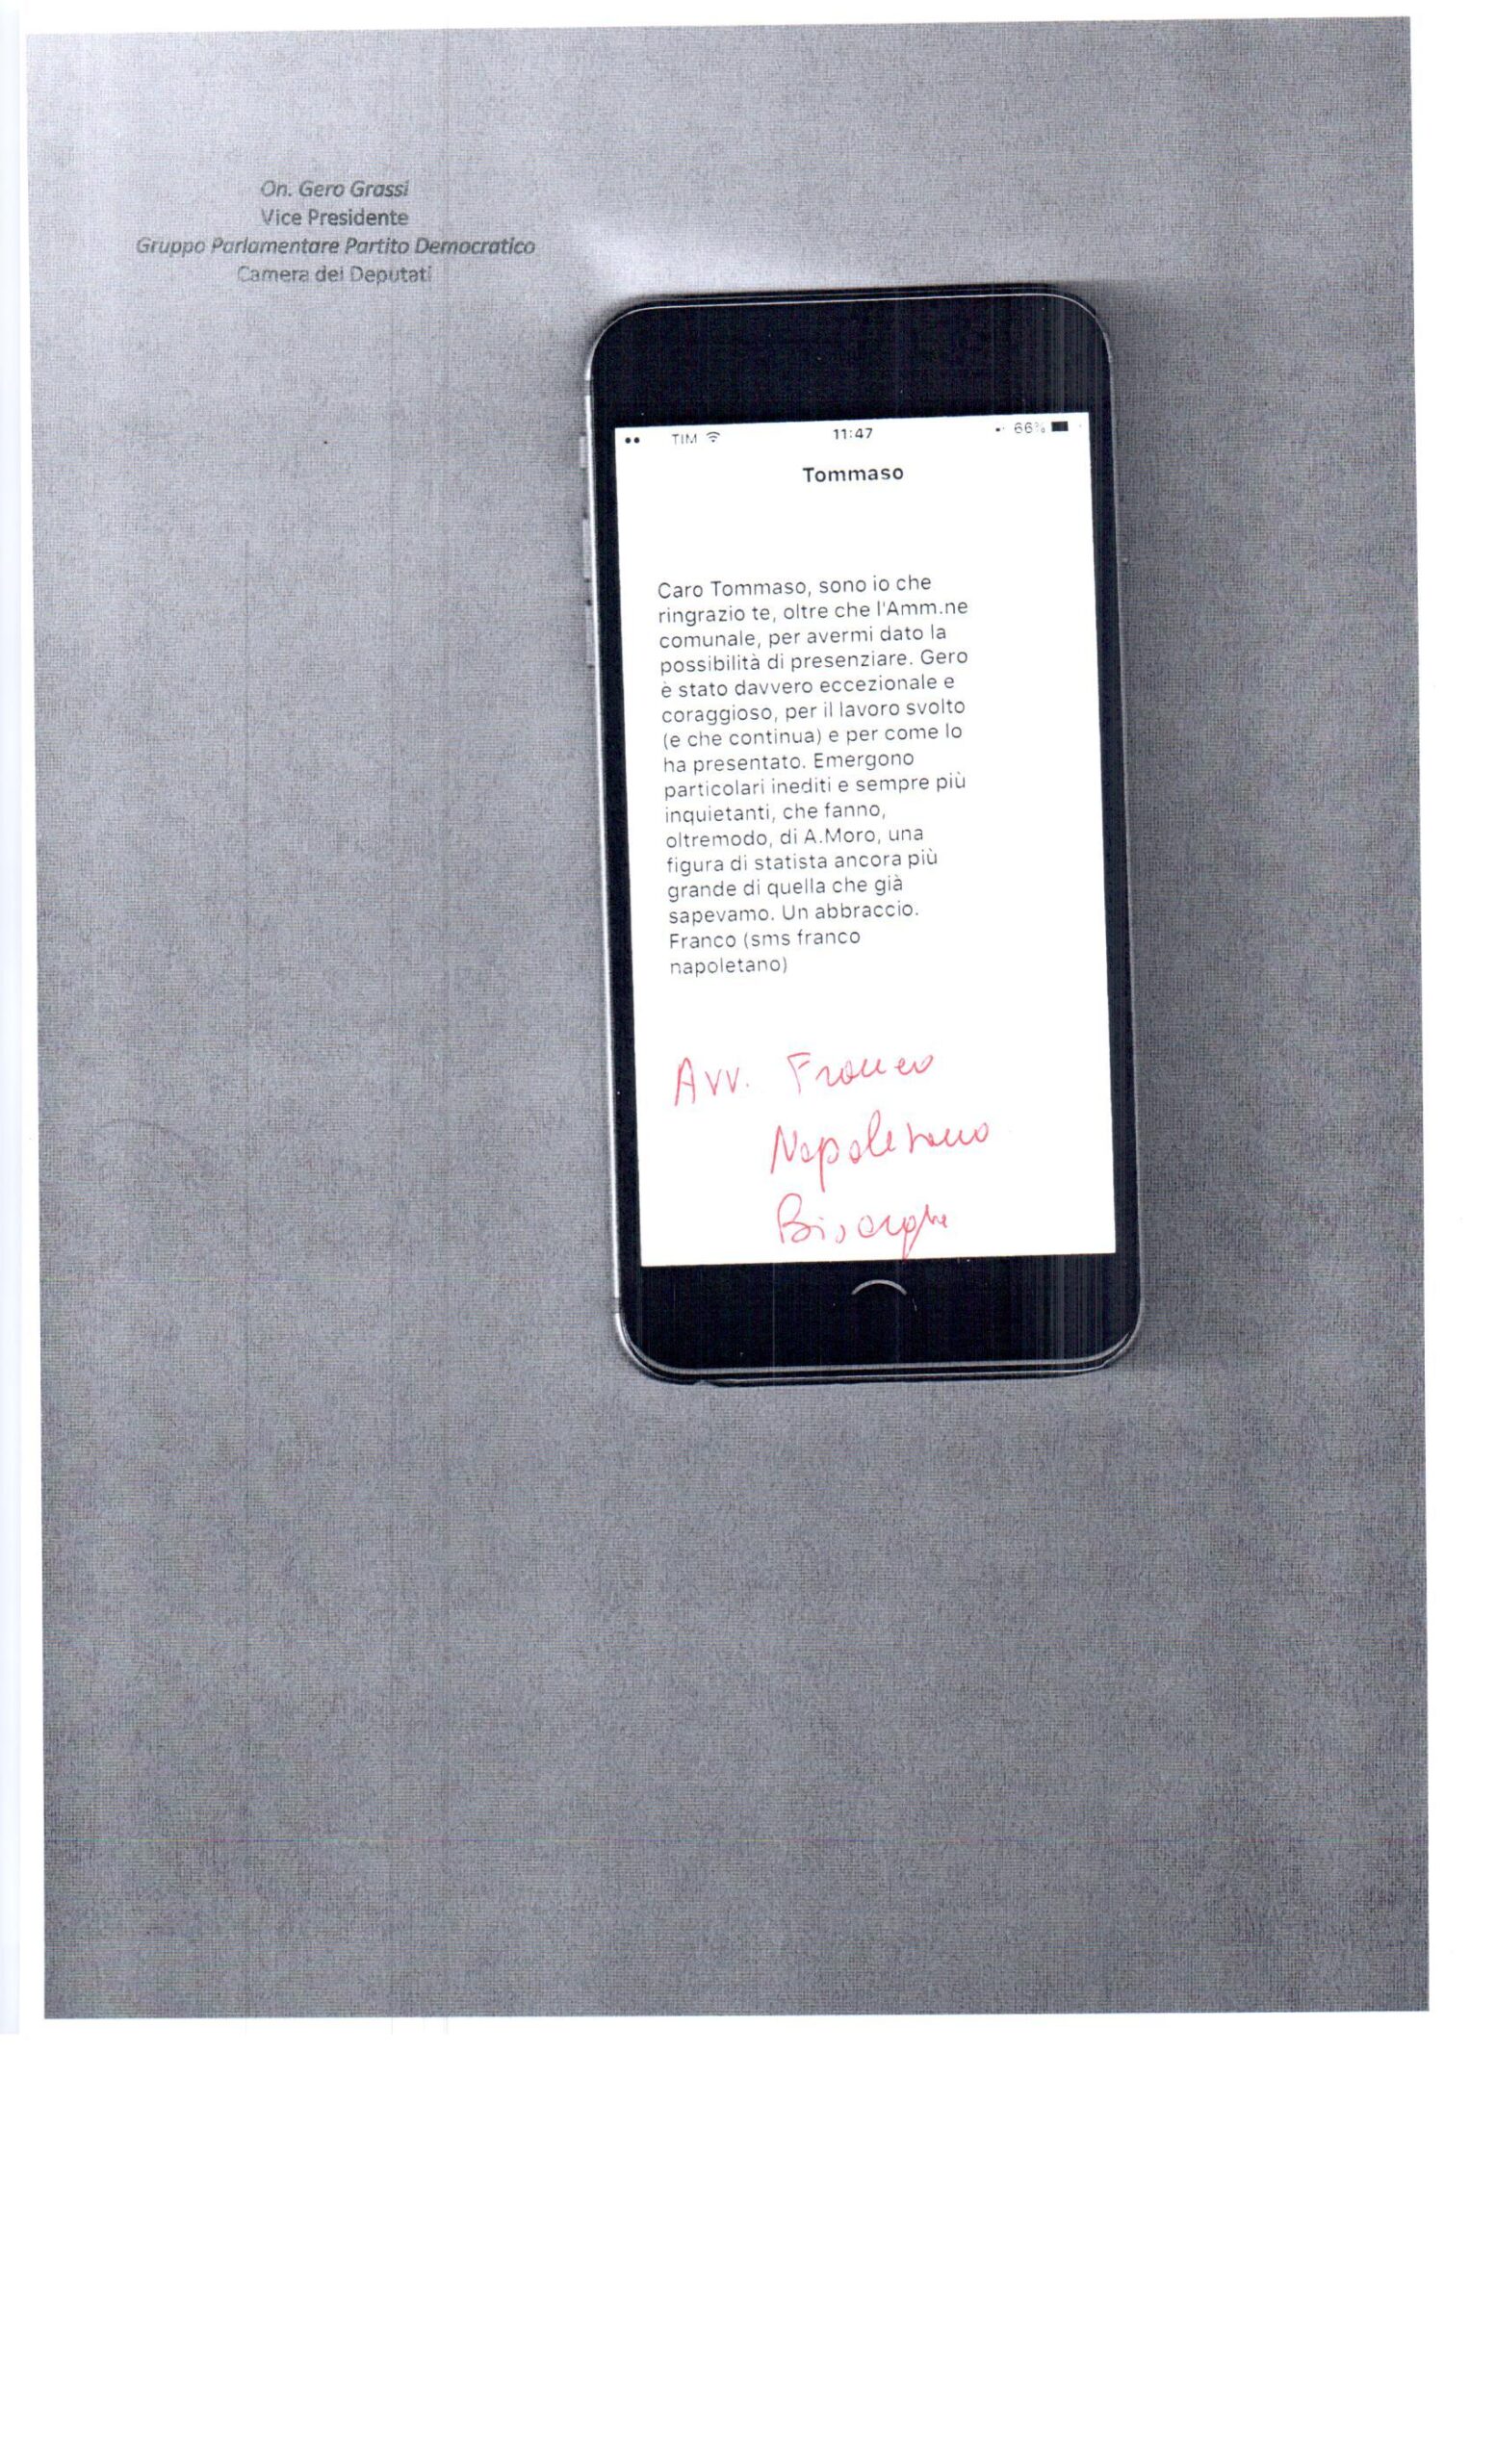 On. Gero Grassi
Vice Presidente
Gruppo Parlamentare Partito Democratico
Camera dei Deputati
TIM 11:47 66%
Tommaso
Caro Tommaso, sono io che
ringrazio te, oltre che l'Amm.ne
comunale, per avermi dato la
possibilità di presenziare. Gero
è stato davvero eccezionale e
coraggioso, per il lavoro svolto
(e che continua) e per come lo
ha presentato. Emergono
particolari inediti e sempre più
inquietanti, che fanno,
oltremodo, di A.Moro, una
figura di statista ancora più
grande di quella che già
sapevamo. Un abbraccio.
Franco (sms franco
napoletano)
Avv. Franco
Napoletano
Bisceglie